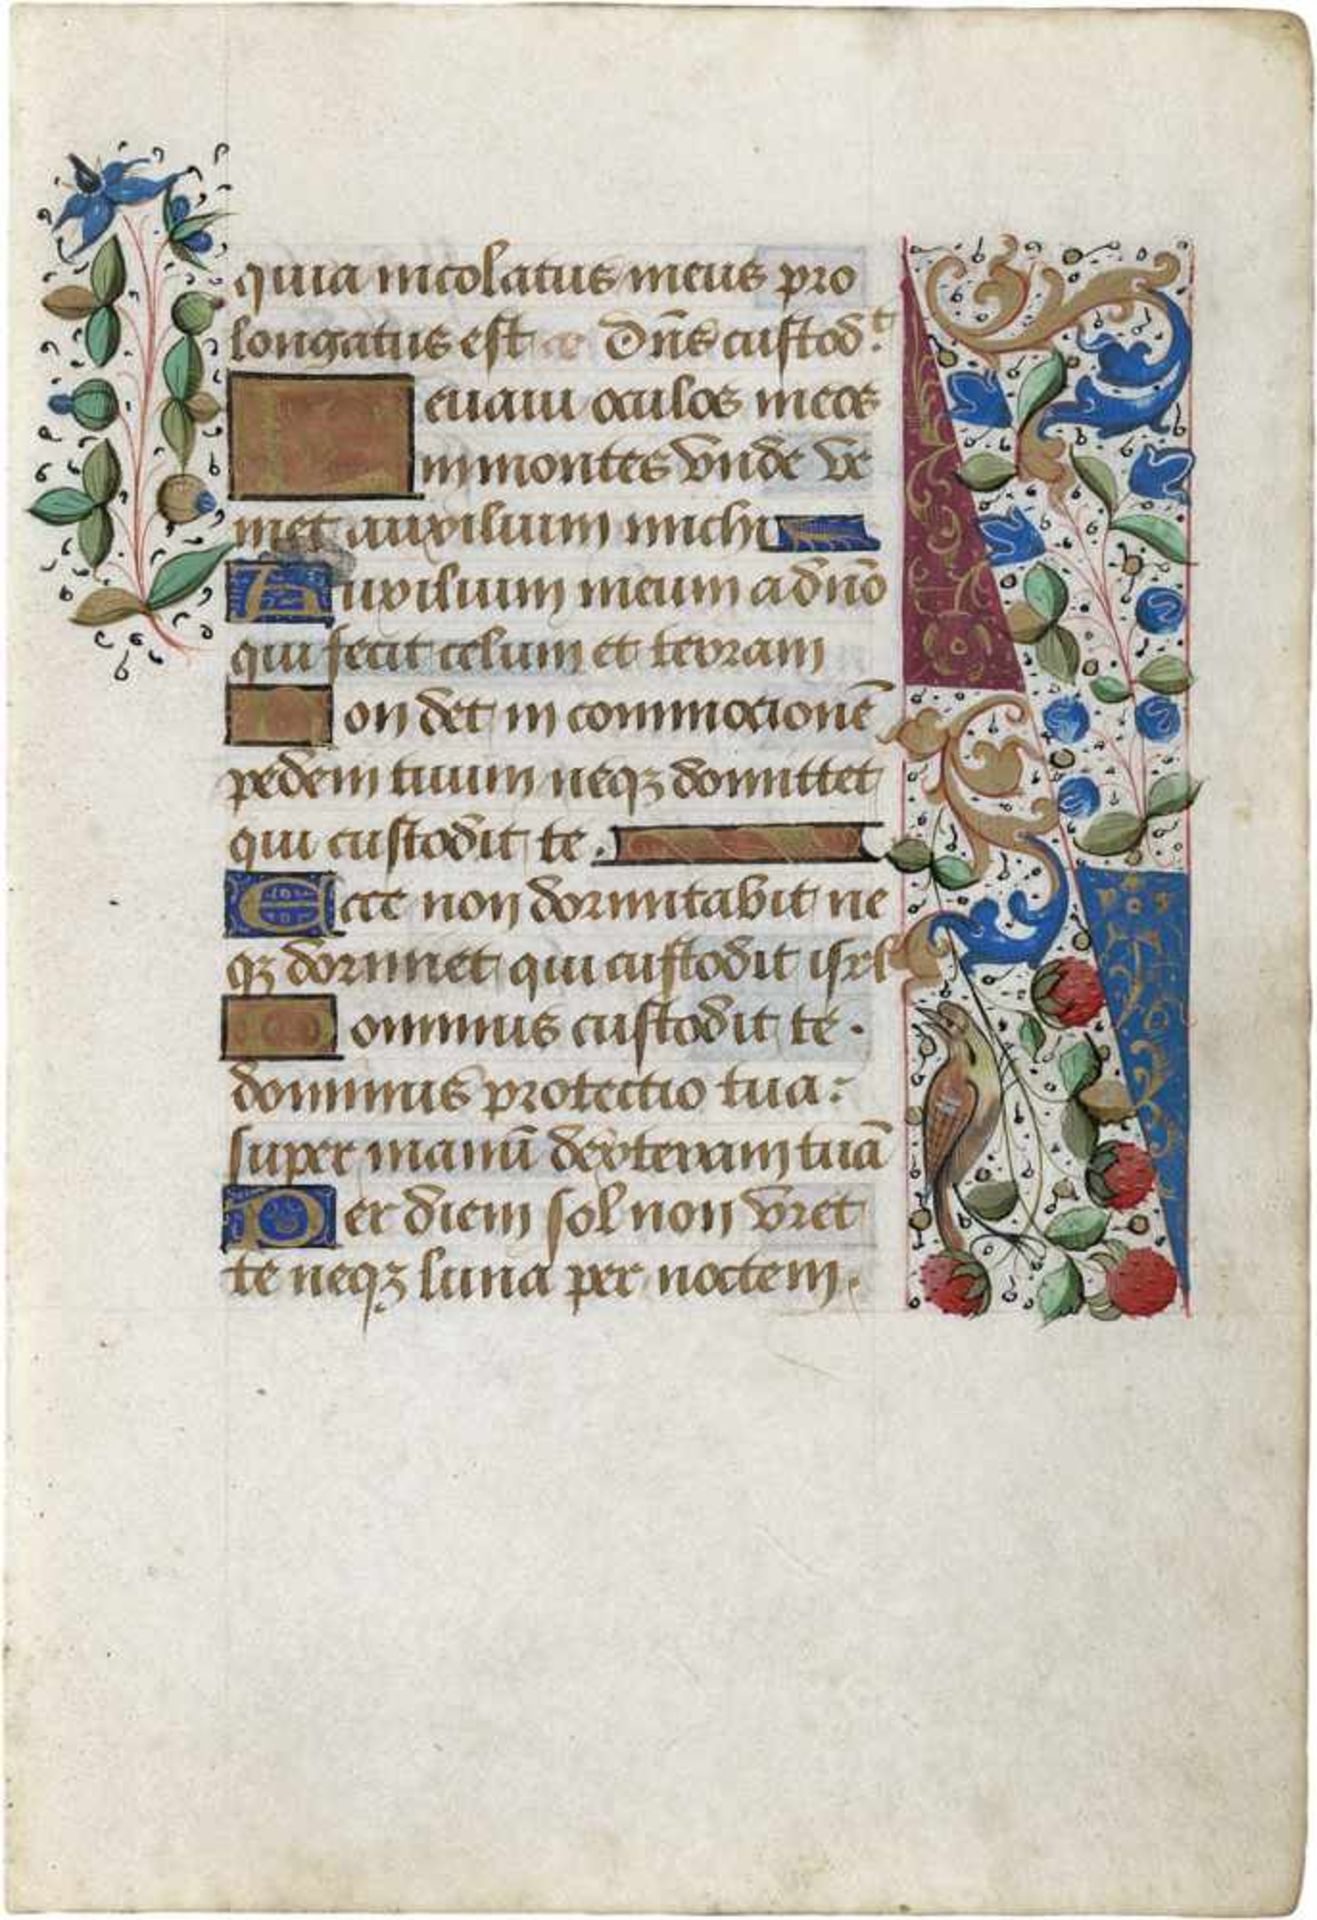 quia incolatus meus pro
longatus est Dn̄s custod.t
Leuaui oculos meos
in montes vnde ve
niet auxilium michi
Auxilium meum a dn̄o
qui fecit celum et terram
Non det in commocionē
pedem tuum neqꝫ dormittet
qui custodit te.
Ecce non dormitabit ne
qꝫ dormiet qui custodit isrl
Dominus custodit te.
dominus protectio tua:
super manū dexteram tuā
Per diem sol non vret
te neqꝫ luna per noctem.